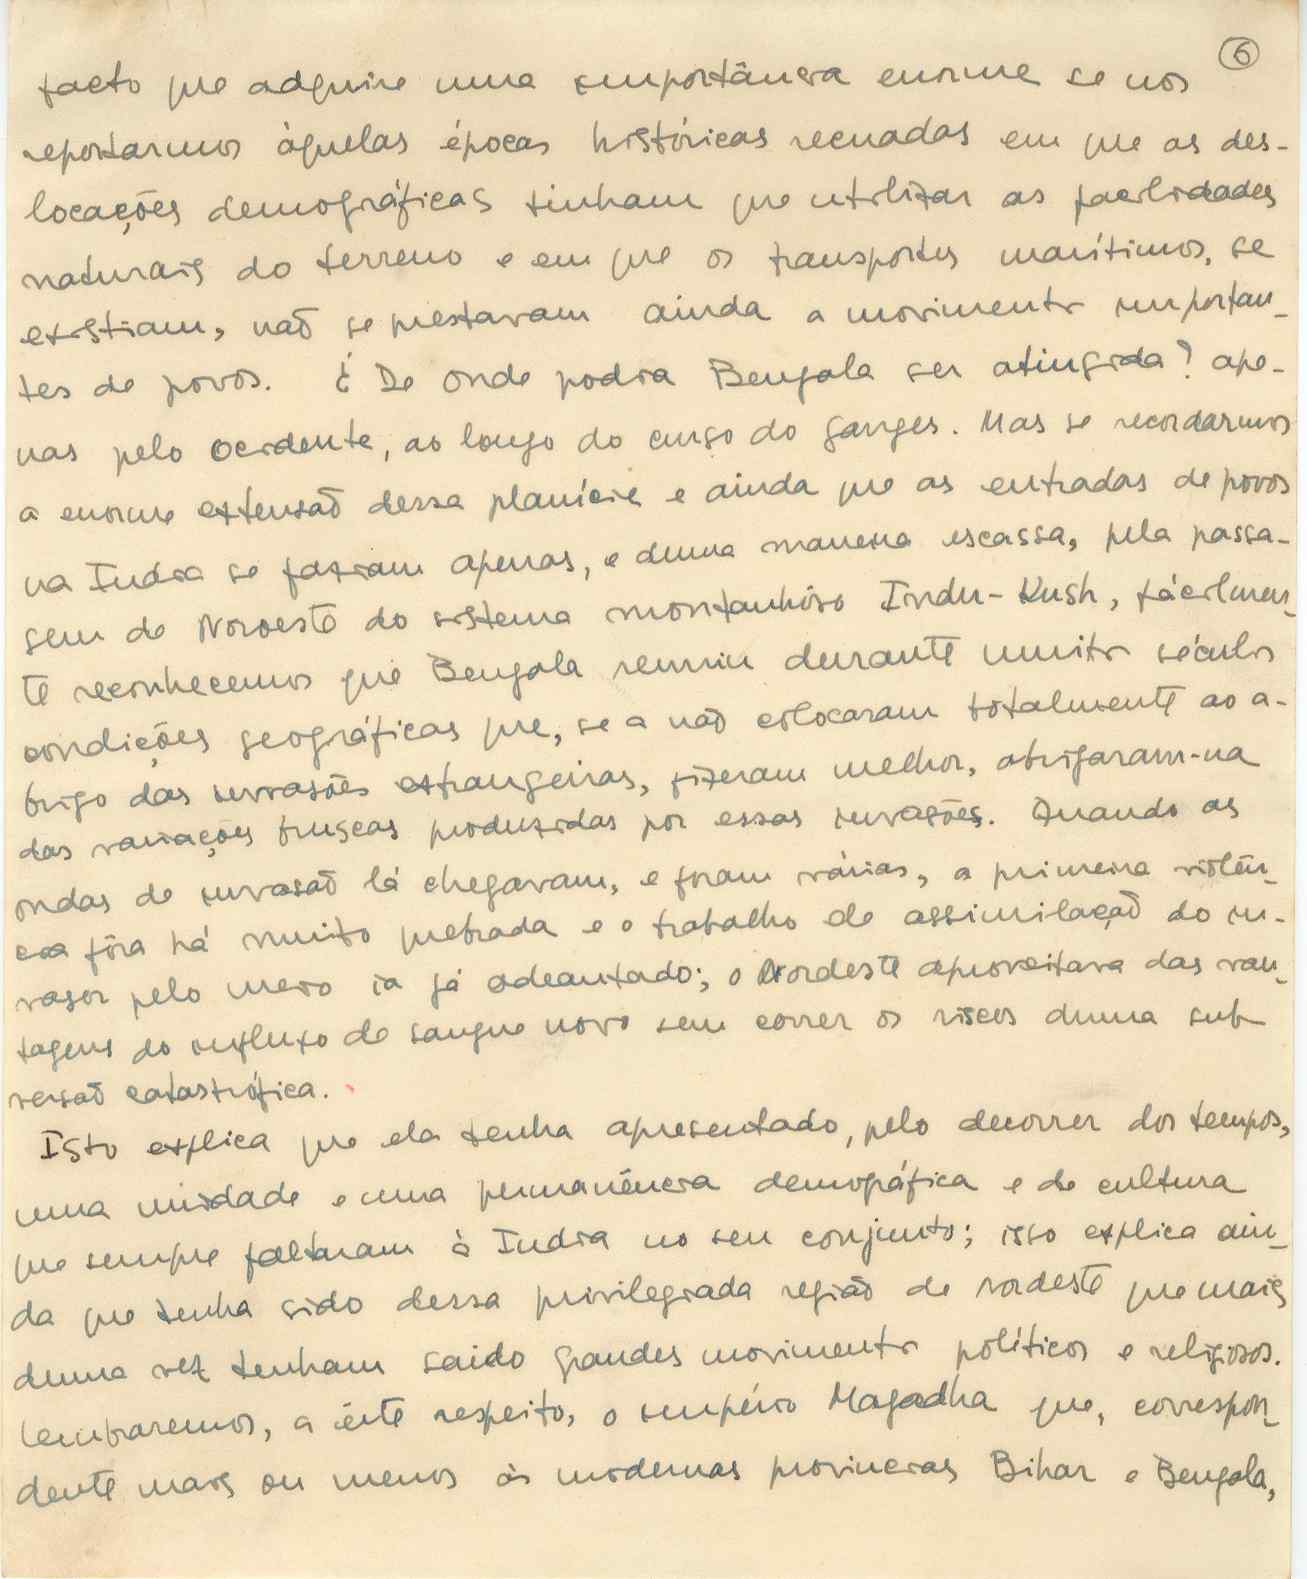 6
facto que adquire uma importância enorme se nos
reportarmos àquelas épocas históricas recuadas em que as des-
locações demográficas tinham que utilizar as facilidades
naturais do terreno e em que os transportes marítimos, se
existiam, não se prestavam ainda a movimentos importan-
tes de povos. ¿ De onde podia Bengala ser atingida? ape-
nas pelo ocidente, ao longo do curso do ganges. Mas se recordarmos
a enorme extensão dessa planície e ainda que as entradas de povos
na India se faziam apenas, e duma maneira escassa, pela passa-
gem de Noroeste do sistema montanhôso Indu-Kush, fácilmen-
te reconhecemos que Bengala reuniu durante muitos séculos
condições geográficas que, se a não colocaram totalmente ao a-
brigo das invasões estrangeiras, fizeram melhor, abrigaram-na
das variações bruscas produzidas por essas invasões. Quando as
ondas de invasão lá chegavam, e foram várias, a primeira violên-
cia fôra há muito quebrada e o trabalho de assimilação do in-
vasor pelo meio ia já adeantado; o Nordeste aproveitava das van-
tagens do influxo de sangue novo sem correr os riscos duma sub-
versão catastrófica.
Isto explica que ela tenha apresentado, pelo decorrer dos tempos,
uma unidade e uma permanência demográfica e de cultura
que sempre faltaram à India no seu conjunto; isso explica ain-
da que tenha sido dessa privilegiada região de nordeste que mais
duma vez tenham saido grandes movimentos políticos e religiosos.
Lembraremos, a êste respeito, o império Magadha que, correspon-
dente mais ou menos às modernas provincias Bihar e Bengala,